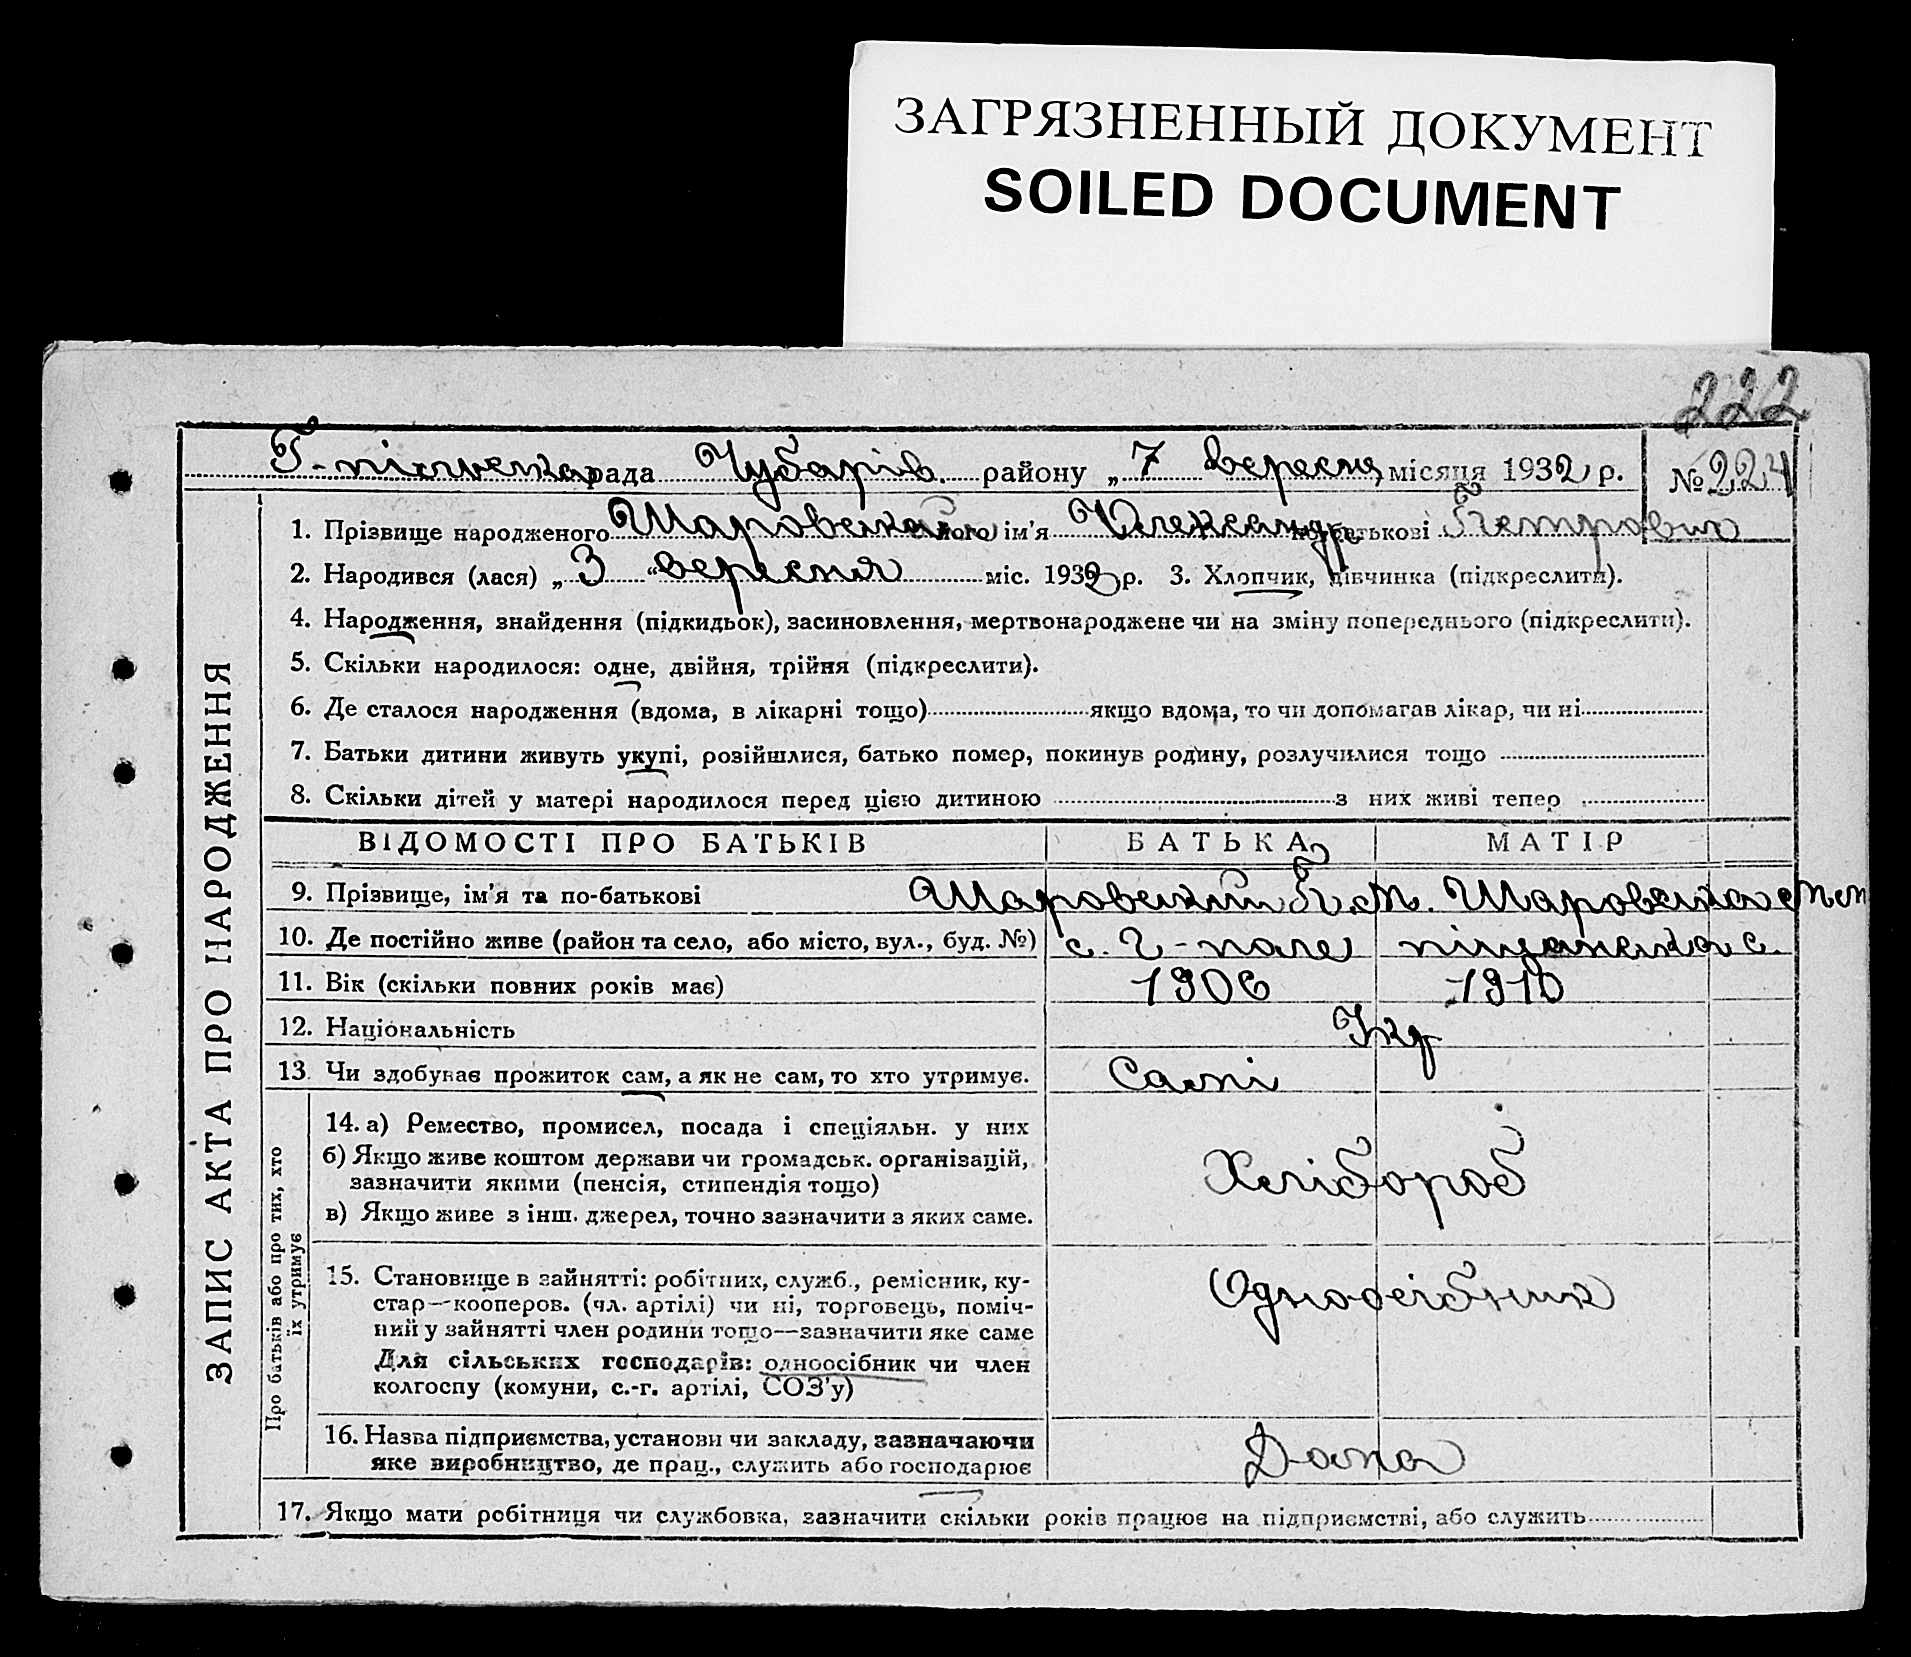 ЗАГРЯЗНЕННЫЙ ДОКУМЕНТ
SOILED DOCUMENT
222
рада Чубарів. району „7 вересня місяця 1932 р. № 224
1. Прізвище народженого Шаровский його ім'я Олександр по батькові Петрович
2. Народився (лася) „3“ вересня міс. 1932 р. 3. Хлопчик, дівчинка (підкреслити).
4. Народження, знайдення (підкидьок), засиновлення, мертвонароджене чи на зміну попереднього (підкреслити).
5. Скільки народилося: одне, двійня, трійня (підкреслити).
6. Де сталося народження (вдома, в лікарні тощо) якщо вдома, то чи допомагав лікар, чи ні
7. Батьки дитини живуть укупі, розійшлися, батько помер, покинув родину, розлучилися тощо
8. Скільки дітей у матері народилося перед цією дитиною з них живі тепер
ЗАПИС АКТА ПРО НАРОДЖЕННЯ
ВІДОМОСТІ ПРО БАТЬКІВ БАТЬКА МАТІР
9. Прізвище, ім'я та по-батькові Шаровский П. М. Шаровська
10. Де постійно живе (район та село, або місто, вул., буд. №) с. Г-поле
11. Вік (скільки повних років має) 1906 1910
12. Національність Укр
13. Чи здобуває прожиток сам, а як не сам, то хто утримує. Самі
Про батьків або про тих, хто
їх утримує
14. а) Ремество, промисел, посада і спеціяльн. у них
б) Якщо живе коштом держави чи громадськ. організацій,
зазначити якими (пенсія, стипендія тощо) Хлібороб
в) Якщо живе з інш. джерел, точно зазначити з яких саме.
15. Становище в зайнятті: робітник, служб., ремісник, ку-
стар—кооперов. (чл. артілі) чи ні, торговець, поміч- Одноосібник
ний у зайнятті член родини тощо—зазначити яке саме
Для сільських господарів: одноосібник чи член
колгоспу (комуни, с.-г. артілі, СОЗ'у)
16. Назва підприємства, установи чи закладу, зазначаючи
яке виробництво, де прац., служить або господарює Дома
17. Якщо мати робітниця чи службовка, зазначити скільки років працює на підприємстві, або служить